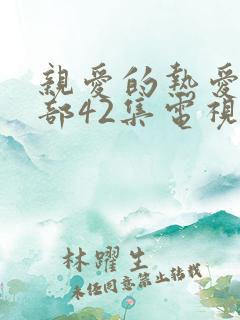 親愛的熱愛
部42集電視
林躍生
未经同意禁止转载